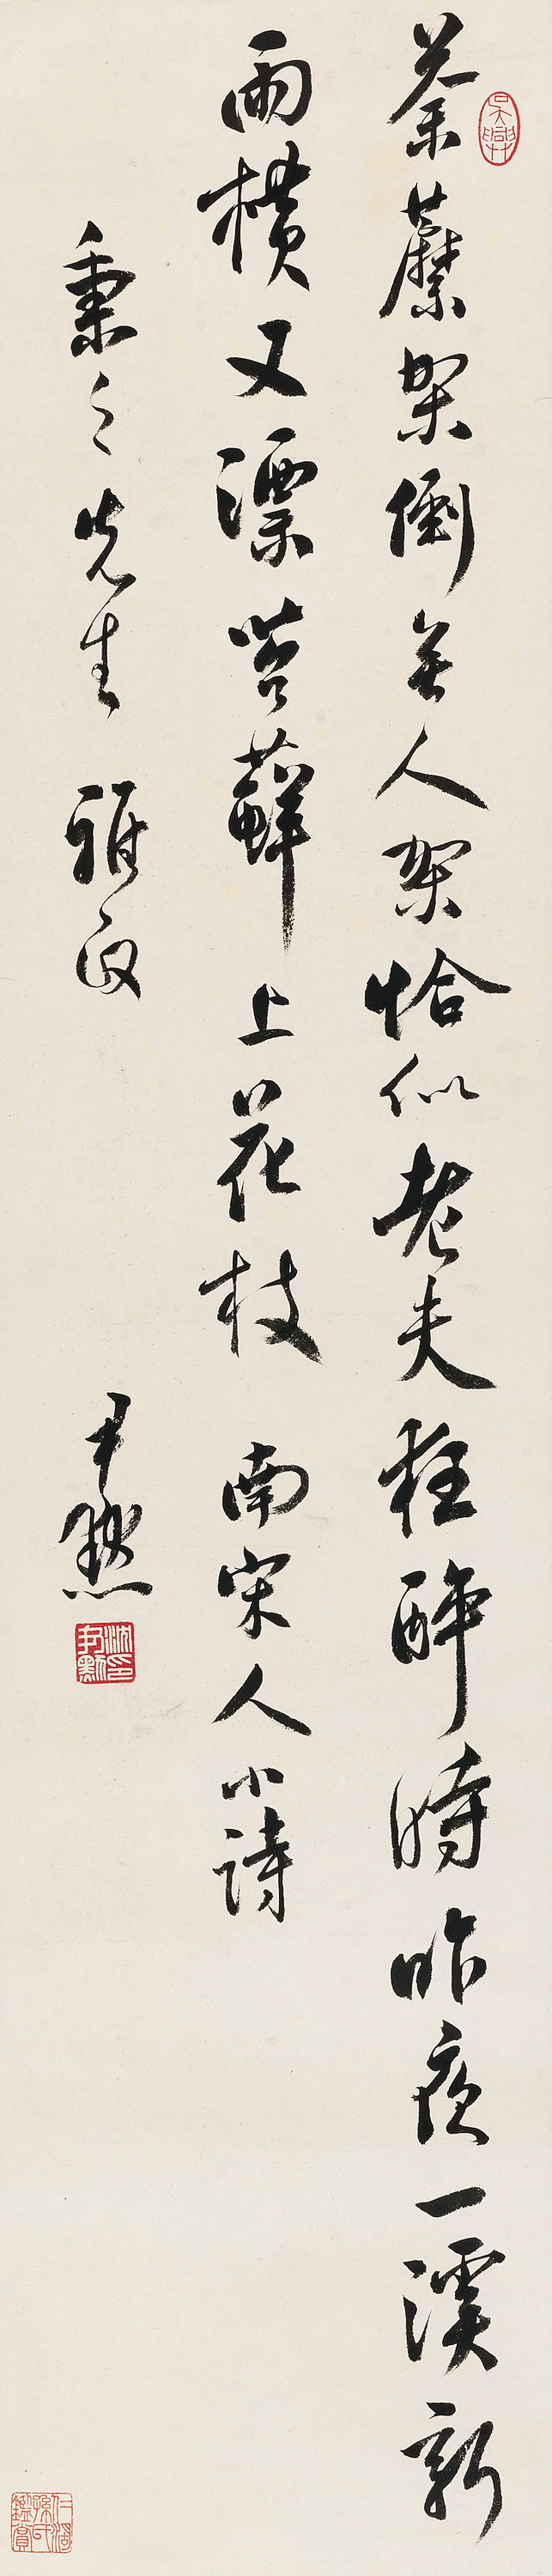 荼蘼架倒無人架恰似老夫狂醉時昨夜一溪新
雨横又漂苔藓上花枝 南宋人小詩
秉之先生 雅政
尹默
吳興
沈尹默印